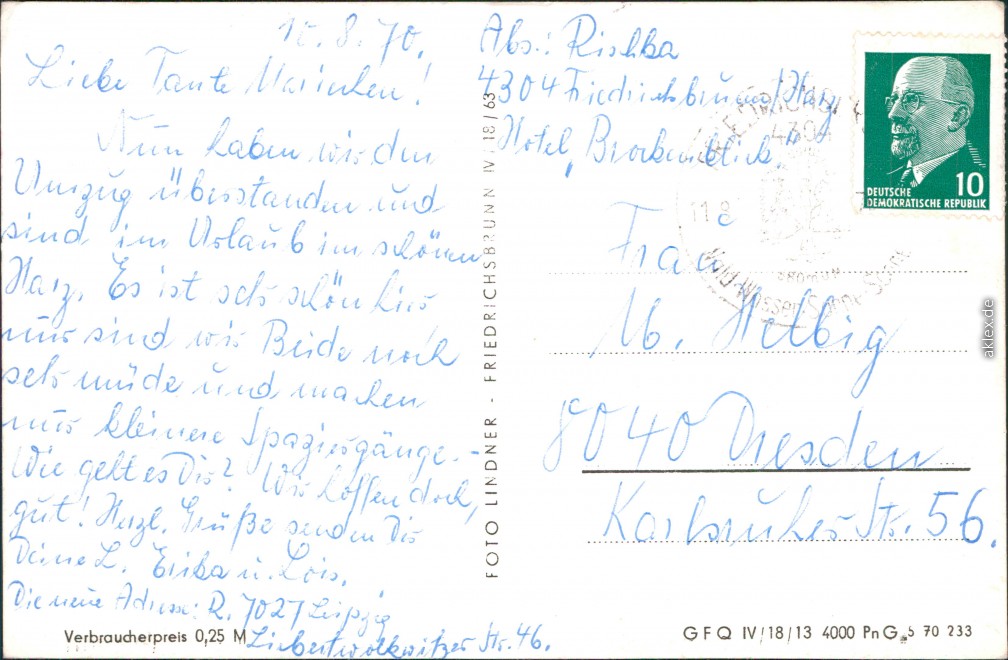 10.8.70.
Liebe Tante Marinchen!
Nun haben wir den
Umzug überstanden und
sind im Urlaub im schönen
Harz. Es ist sehr schön hier
nur sind wir Beide noch
sehr müde und machen
nur kleinere Spaziergänge. -
Wie geht es Dir? Wir hoffen doch,
gut! Herzl. Grüße senden Dir
Deine L. Erika u. Lois.
Die neue Adresse: R. 7027 Leipzig
Liebertwolkwitzer Str. 46.
Verbraucherpreis 0,25 M
FOTO LINDNER - FRIEDRICHSBRUNN IV/18/63
Abs.: Rischka
4304 Friedrichsbrunn/Harz
Hotel "Brockenblick"
DEUTSCHE
DEMOKRATISCHE REPUBLIK
10
4304
11.8
Wald-Wasser-Sonne
Frau
M. Helbig
8040 Dresden
Karlsruher Str. 56.
GFQ IV/18/13 4000 PnG 5 70 233
aklex.de